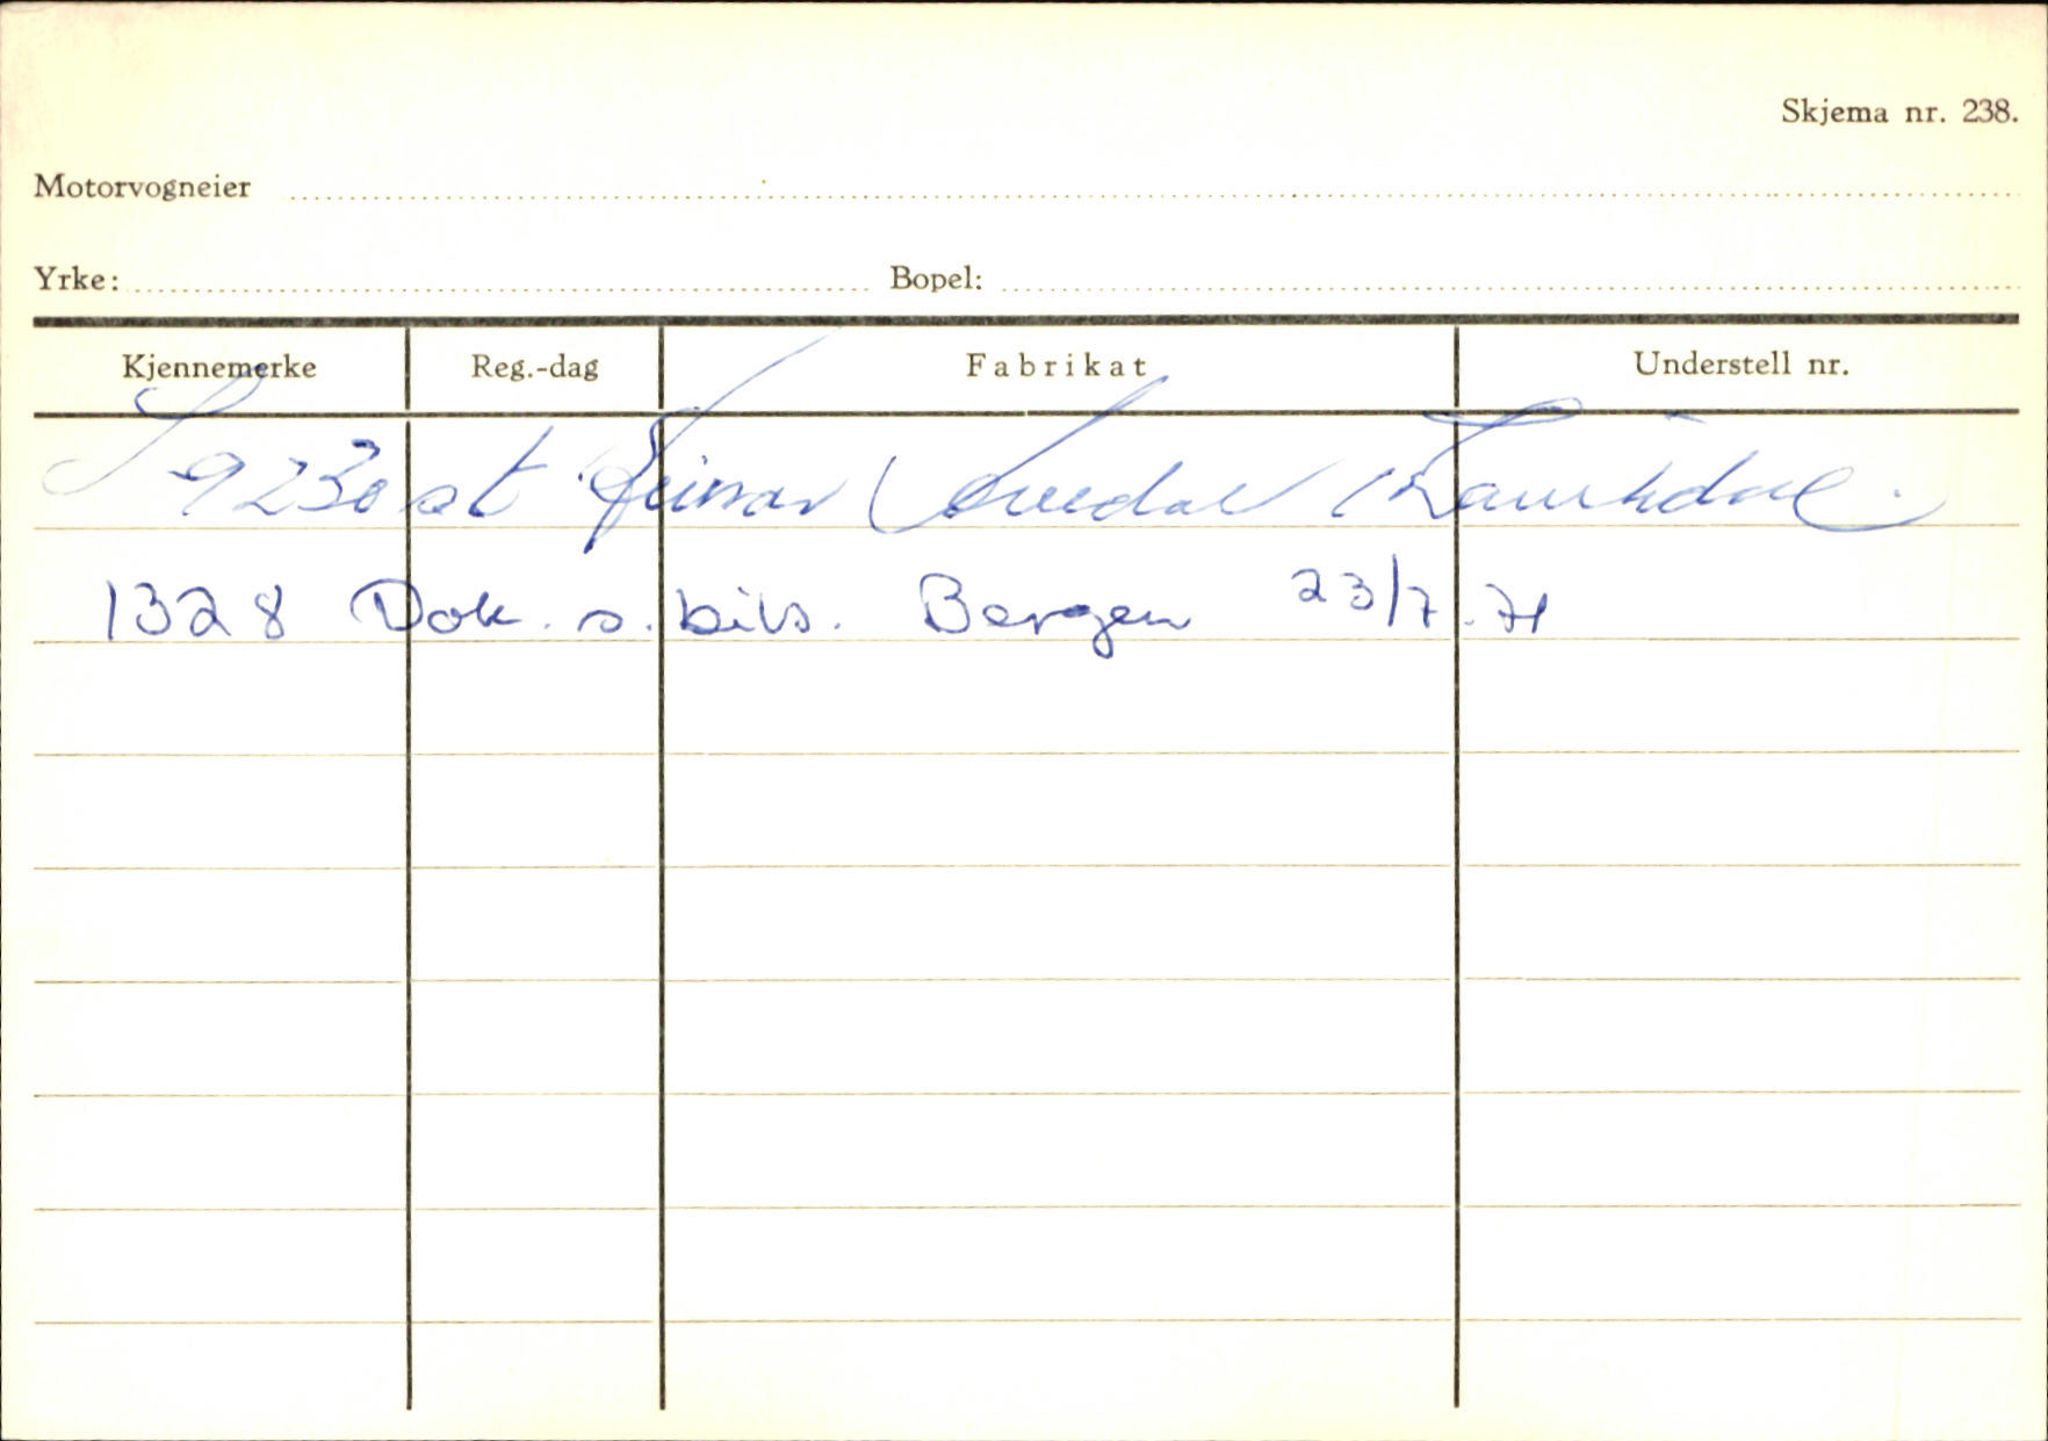 Skjema nr. 238.
Motorvogneier
Yrke: Bopel:
Kjennemerke Reg.-dag Fabrikat Understell nr.
S 9230 st Einar
1328 Dok. s. bils. Bergen 23/7.71